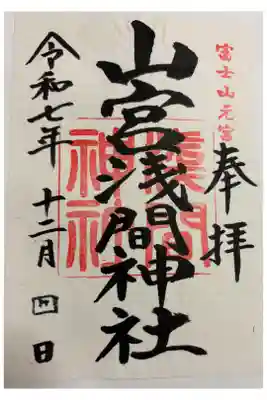 富士山元宮
奉拝
山宮浅間神社
浅間
神社
令和七年
十二月四日